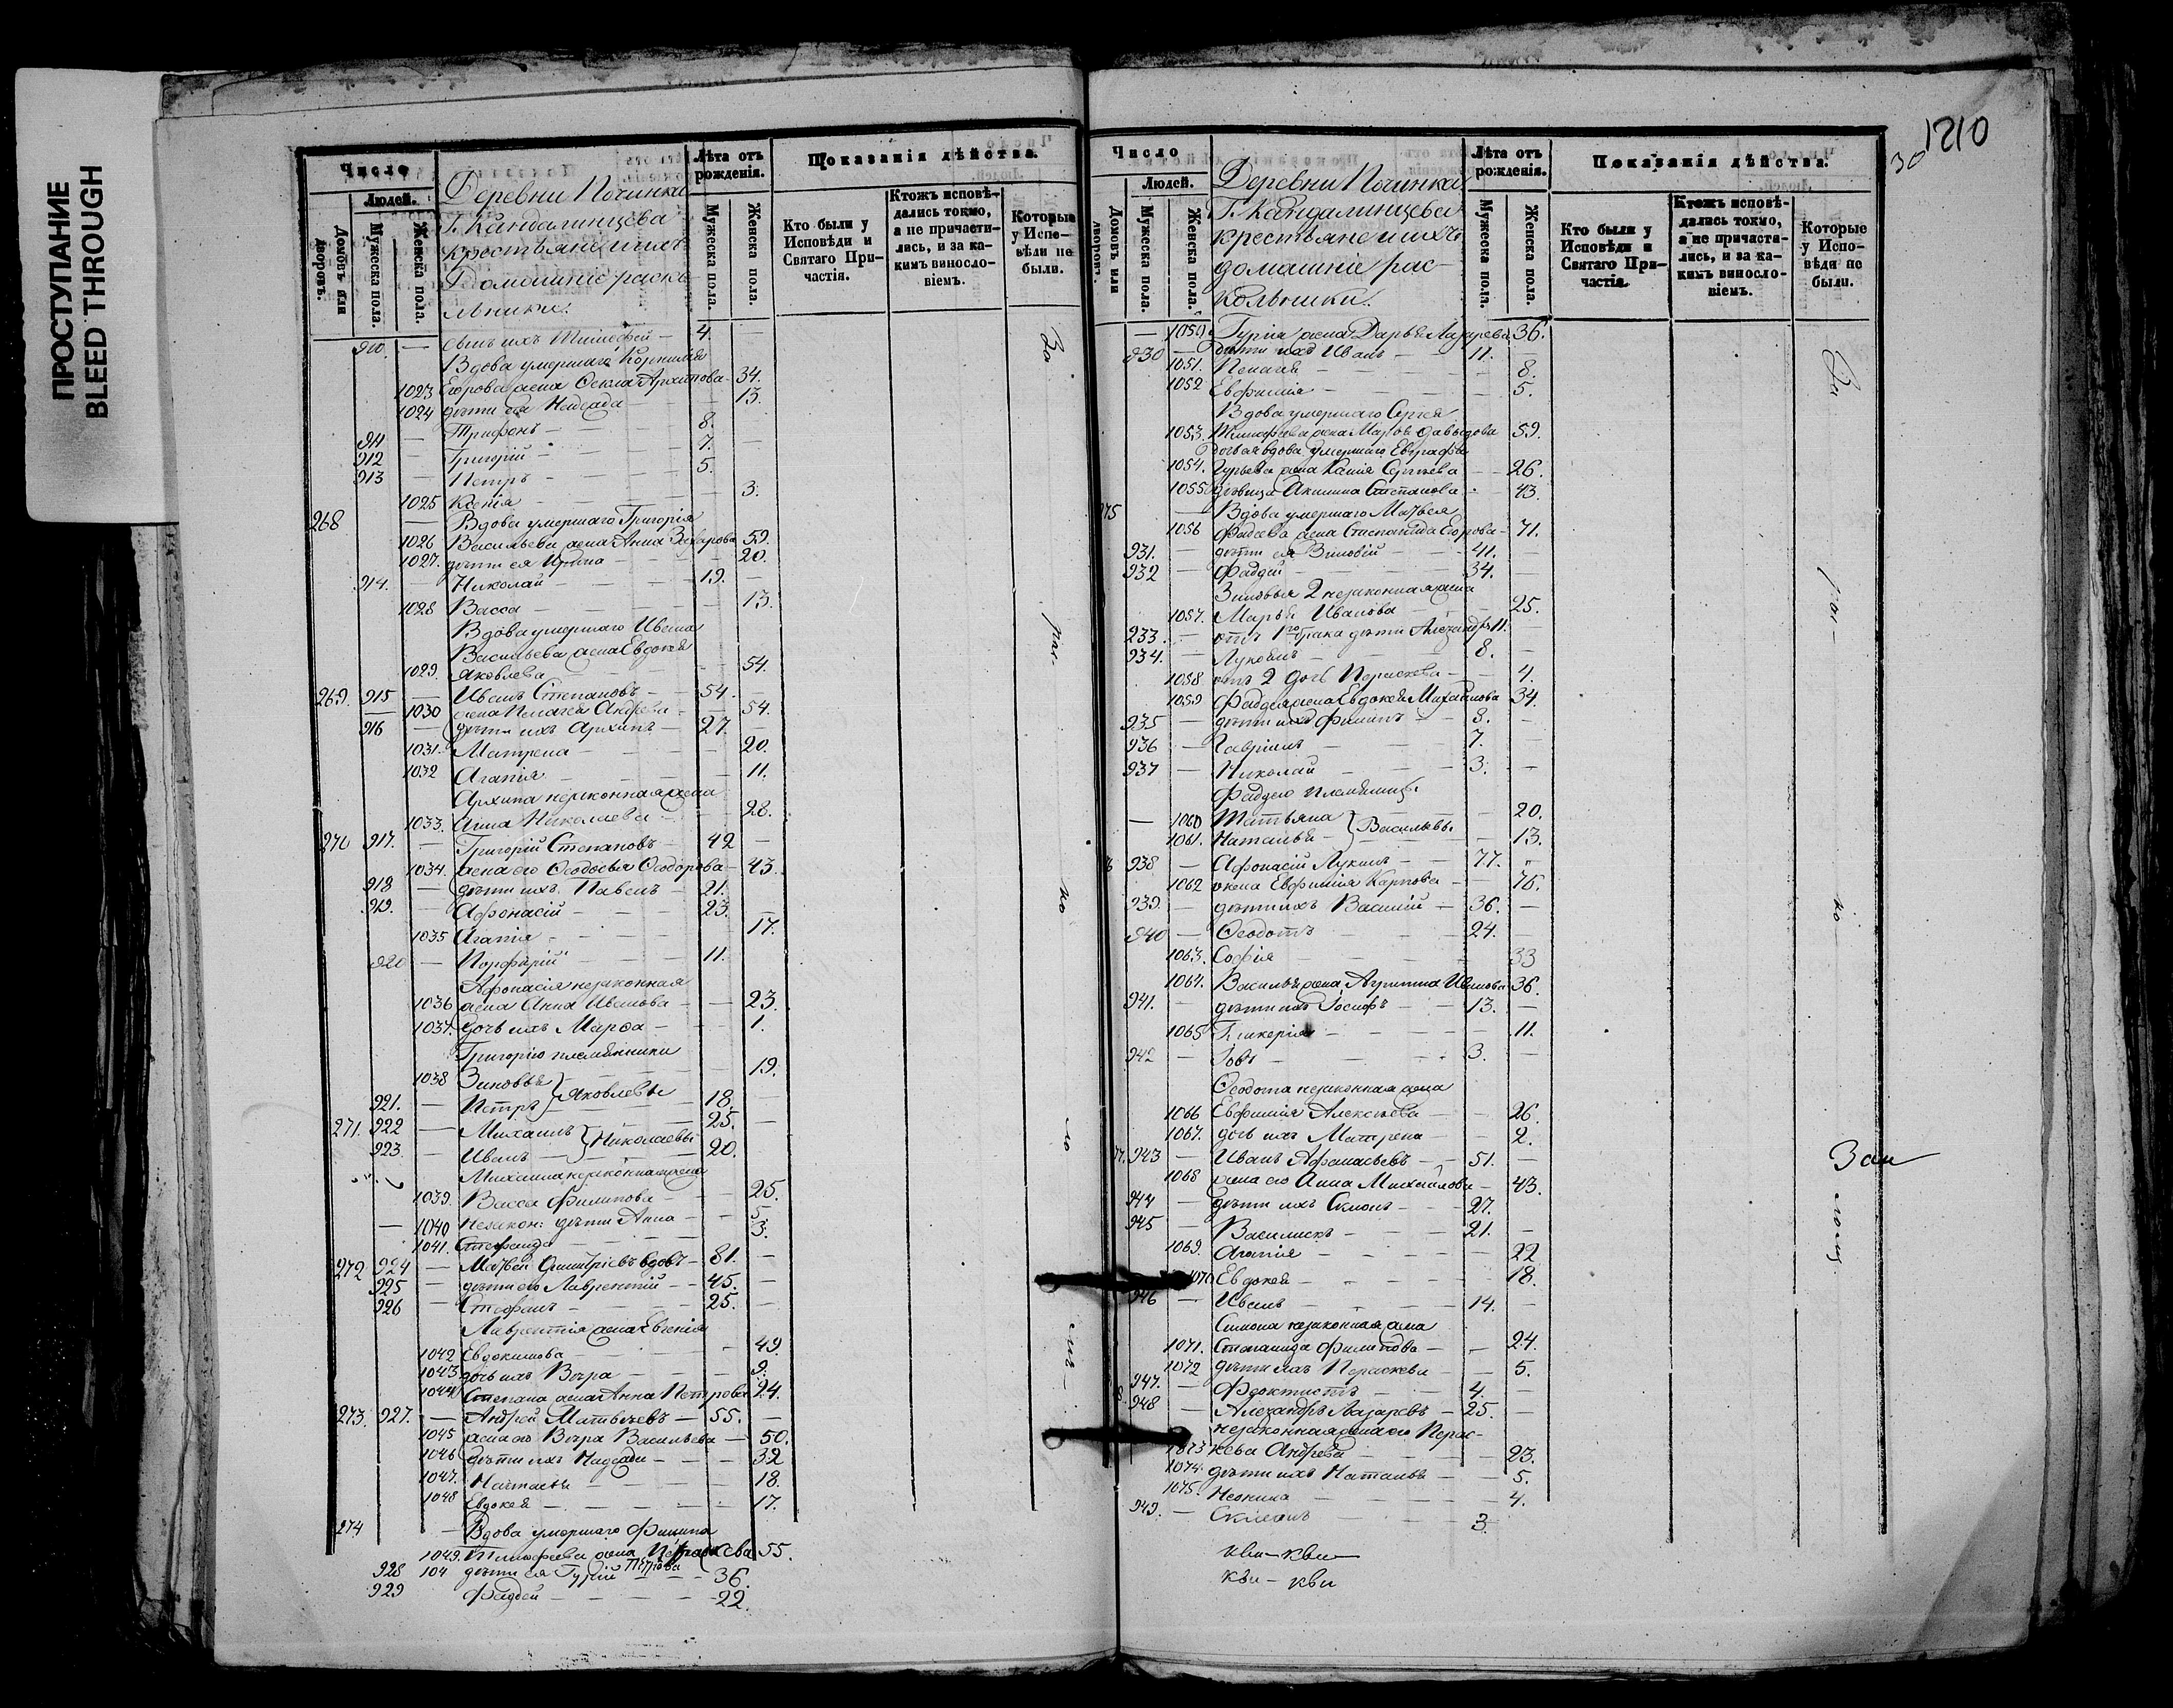 ПРОСТУПАНИЕ
BLEED THROUGH
Число
Людей.
Домовъ или дворовъ.
Мужеска пола.
Женска пола.
Деревни Починка
Г. Кандалинцева
крестьяне и ихъ
домашніе раско-
льники.
Лѣта отъ рожденія.
Мужеска пола.
Женска пола.
Показанія дѣйства.
Кто были у Исповѣди и Святаго Причастія.
Ктожъ исповѣдались токмо, а не причастились, и за какимъ винословіемъ.
Которые у Исповѣди не были.
910. — сынъ ихъ Тимофей — 4. —
Вдова умершаго Корнилія
1023 Егорова жена Ѳекла Архипова — 34.
1024 дѣти ея Надежда — 13.
911 — Трифонъ — 8.
912 — Григорій — 7. —
913 — Петръ — 5. —
1025 Ксенія — 3.
268 — Вдова умершаго Григорія
1026 Васильева жена Анна Захарова 59.
1027. дѣти ея Ирина — 20.
914. — Николай — 19. —
1028 Васса — 13.
Вдова умершаго Ивана
Васильева жена Евдокія
1029. Яковлева — 54.
269. 915 — Иванъ Степановъ — 54. —
— 1030 жена Пелагея Андреева — 54.
916 — дѣти ихъ Архипъ — 27.
1031. Матрена — 20.
1032 Агапія — 11.
Архипа незаконная жена
1033. Анна Николаева — 28.
270 917. — Григорій Степановъ — 42 —
1034. жена его Ѳеодосья Ѳеодорова — 43.
918 — дѣти ихъ Павелъ — 21.
919. — Афонасій — 23. —
1035 Агапія — 17.
920 — Порфирій — 11.
Афонасія незаконная
1036 жена Анна Иванова — 23.
1037. дочь ихъ Марѳа — 1.
Григорію племянники
1038 Зиновья } Яковлевы — 19.
921. — Петръ — 18 —
271. 922 — Михаилъ } Николаевы 25. —
923 — Иванъ — 20.
Михаила незаконная жена
1039. Васса Филипова — 25.
— 1040 незакон: дѣти Анна — 5.
1041. Стефанида — 3.
272 924 — Матвей Димитріевъ вдовъ — 81. —
925 — дѣти его Лаврентій — 45. —
926 — Стефанъ — 25. —
Лаврентія жена Евгенія
1042 Евдокимова — 49.
1043 дочь ихъ Вѣра — 9.
1044 Степана жена Анна Петрова 24.
273. 927. — Андрей Матвѣевъ — 55. —
1045 жена его Вѣра Васильева — 50.
1046 дѣти ихъ Надежда — 32
1047. Наталья — 18.
1048 Евдокея — 17.
274 — Вдова умершаго Филипа
1049. Тимофеева жена Параскева 55.
Петрова
928 104 дѣти ея Гурій — 36.
929 Фаддей — 22.
За
рас
ко
ло
мъ
1210
30
Число
Людей.
Домовъ или дворовъ.
Мужеска пола.
Женска пола.
Деревни Починка
Г. Кандалинцева
крестьяне и ихъ
домашніе рас-
кольники.
Лѣта отъ рожденія.
Мужеска пола.
Женска пола.
Показанія дѣйства.
Кто были у Исповѣди и Святаго Причастія.
Ктожъ исповѣдались токмо, а не причастились, и за какимъ винословіемъ.
Которые у Исповѣди не были.
— 1050 Гурія жена Дарья Лазарева 36.
930 — дѣти ихъ Иванъ — 11. —
1051. Пелагея — 8.
1052 Евфимія — 5.
Вдова умершаго Сергея
1053. Тимофеева жена Марѳа Давыдова 59.
дочь ея вдова умершаго Евграфа
1054. Гурьева жена Ксенія Сергѣева — 26.
1055 дѣвица Акилина Степанова — 43.
275 — Вдова умершаго Матвея
1056 Фадѣева жена Степанида Егорова — 71.
931. — дѣти ея Зиновій — 41. —
932 — Фаддей — 34. —
Зиновья 2 незаконная жена
1057. Марья Иванова — 25.
233. — отъ 1го брака дѣти Александръ 11. —
934. — Лукіянъ — 8. —
1058. отъ 2 дочь Параскева — 4.
1059 Фаддея жена Евдокея Михайлова 34.
935 — дѣти ихъ Филипъ — 8. —
936 — Гавріилъ — 7. —
937 — Николай — 3. —
Фаддею племянницы
— 1060 Татьяна } Васильевы — 20.
1061. Наталья — 13.
6 938 — Афонасій Лукинъ — 77. "
1062 жена Евфимія Карпова — 75.
939. — дѣти ихъ Василій — 36. —
940 — Ѳеодотъ — 24. —
1063. Софія — 33
1064. Василья жена Агрипина Иванова 36.
941. — дѣти ихъ Іосифъ — 13. —
1065 Гликерія — 11.
942 — Іовъ — 3. —
Ѳеодота незаконная жена
1066 Евфимія Алексѣева — 26.
1067. дочь ихъ Матрена — 2.
77. 943 — Иванъ Афанасьевъ — 51. —
1068 жена его Анна Михайлова — 43.
944 — дѣти ихъ Симонъ — 27.
945 — Василискъ — 21. —
1069. Агапія — 22
1070 Евдокея — 18.
946 — Иванъ — 14. —
Симона незаконная жена
1071. Степанида Филипова — 24.
1072 дѣти ихъ Параскева — 5.
947. — Феоктистъ — 4. —
8. 948 — Александръ Лазаревъ — 25. —
незаконная жена его Парас-
1073 кева Андреева — 23.
1074. дѣти ихъ Наталья — 5.
1075. Неонила — 4.
949. — Симеонъ — 3.